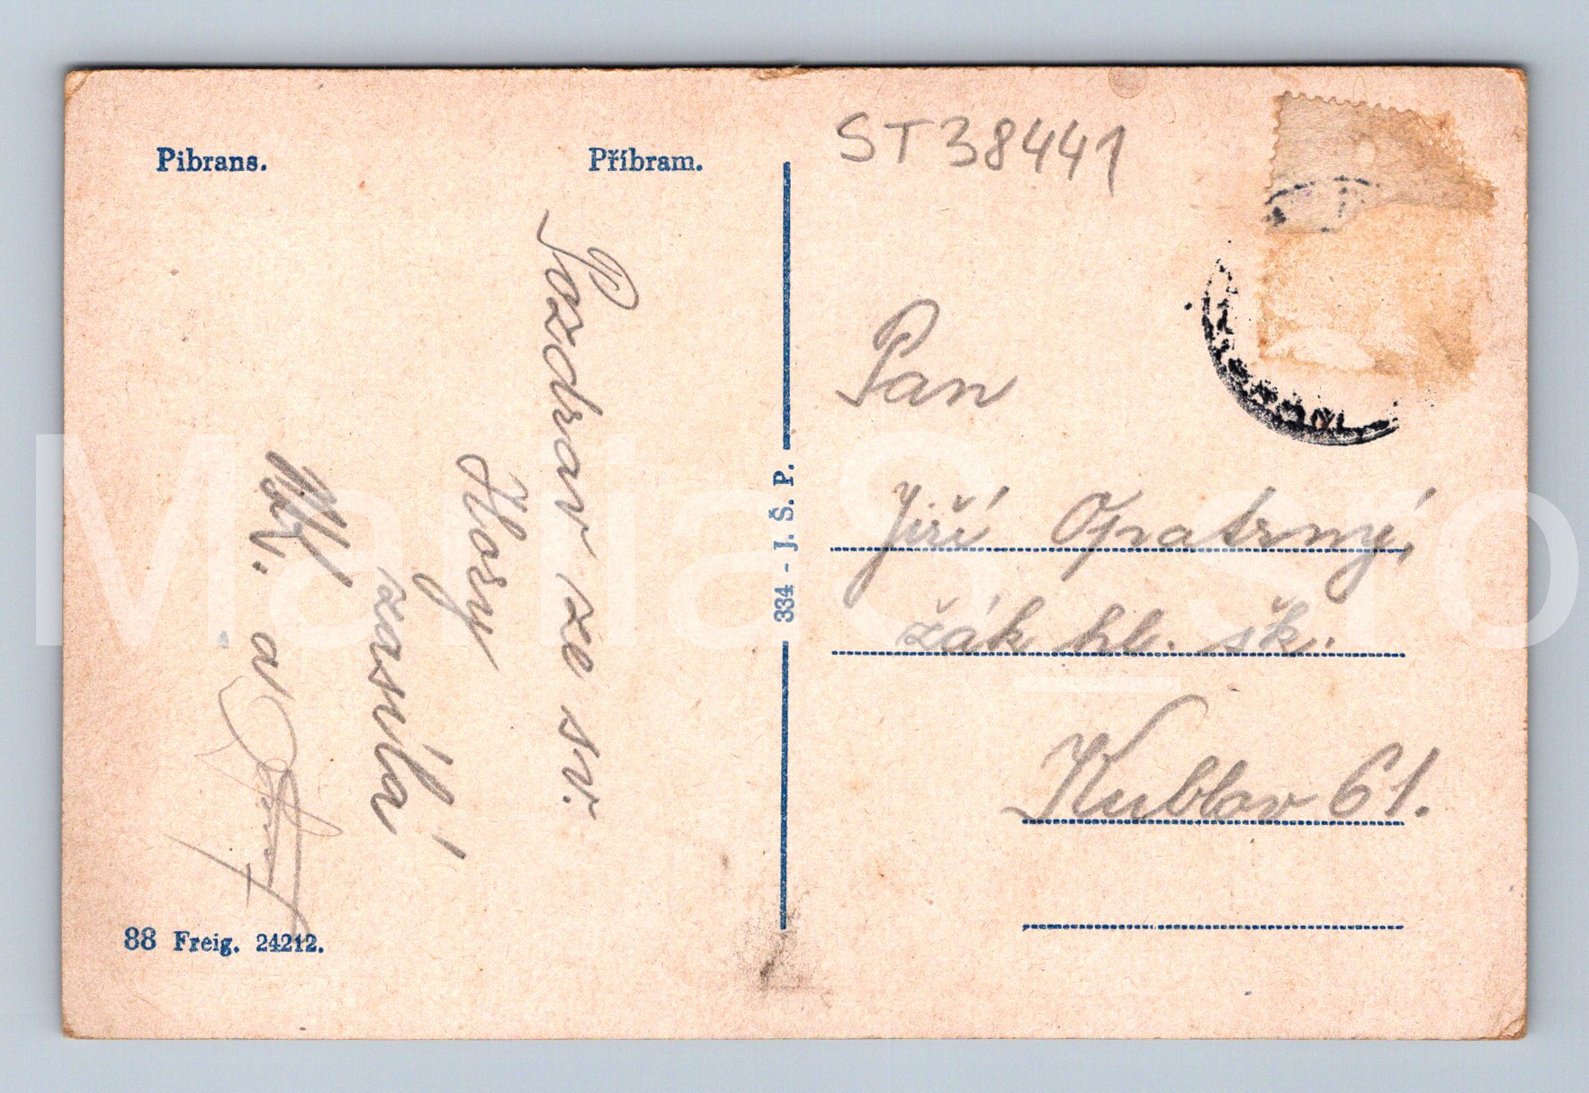 Pibrans.
Příbram.
ST38441
Pozdrav ze sv.
Hory
zasílá
a
334 - J. Š. P.
Pan
Jiří Opatrný,
žák hl. šk.
Kublov 61.
88 Freig. 24212.